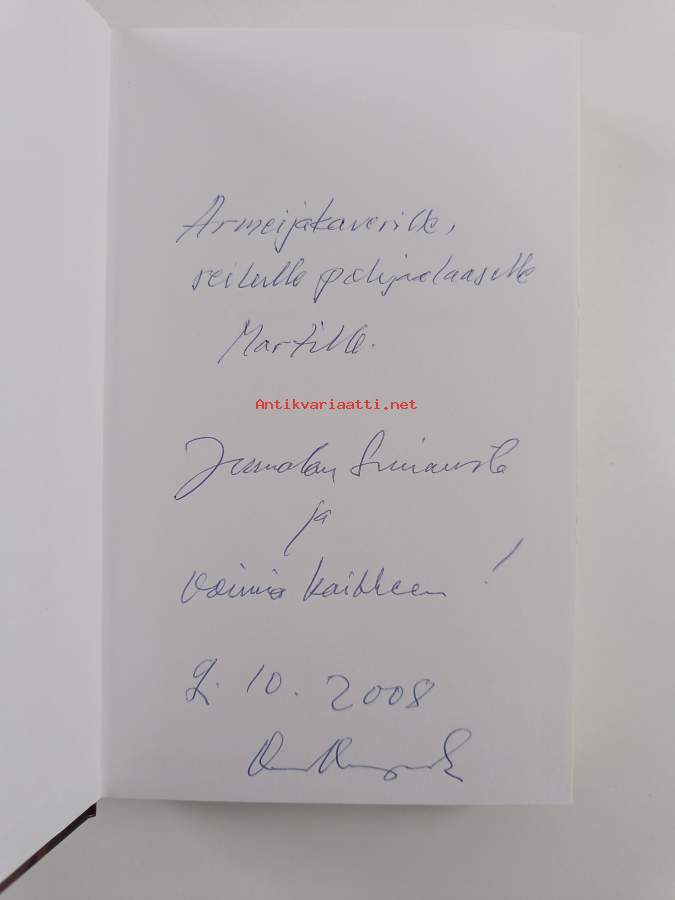 Armeijakaverille,
reilulle pohjalaaselle
Martille.
Antikvariaatti.net
Jumalan Siunausta
ja
voimia kaikkeen!
2. 10. 2008